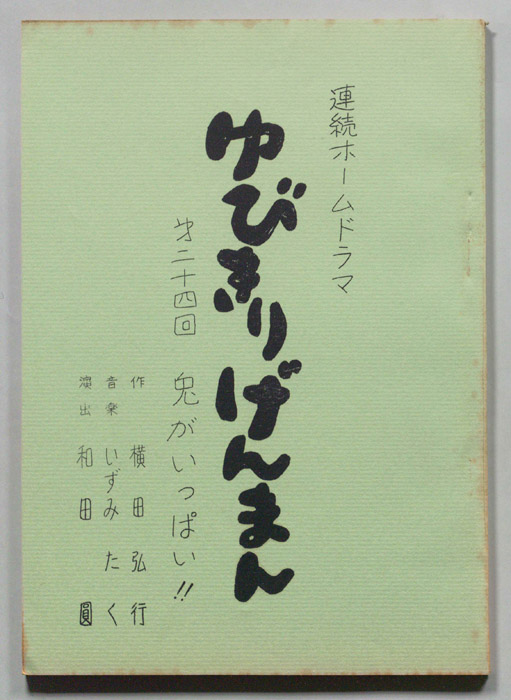 連続ホームドラマ
ゆびきりげんまん
第二十四回 鬼がいっぱい!!
作 横田弘行
音楽 いずみたく
演出 和田圓